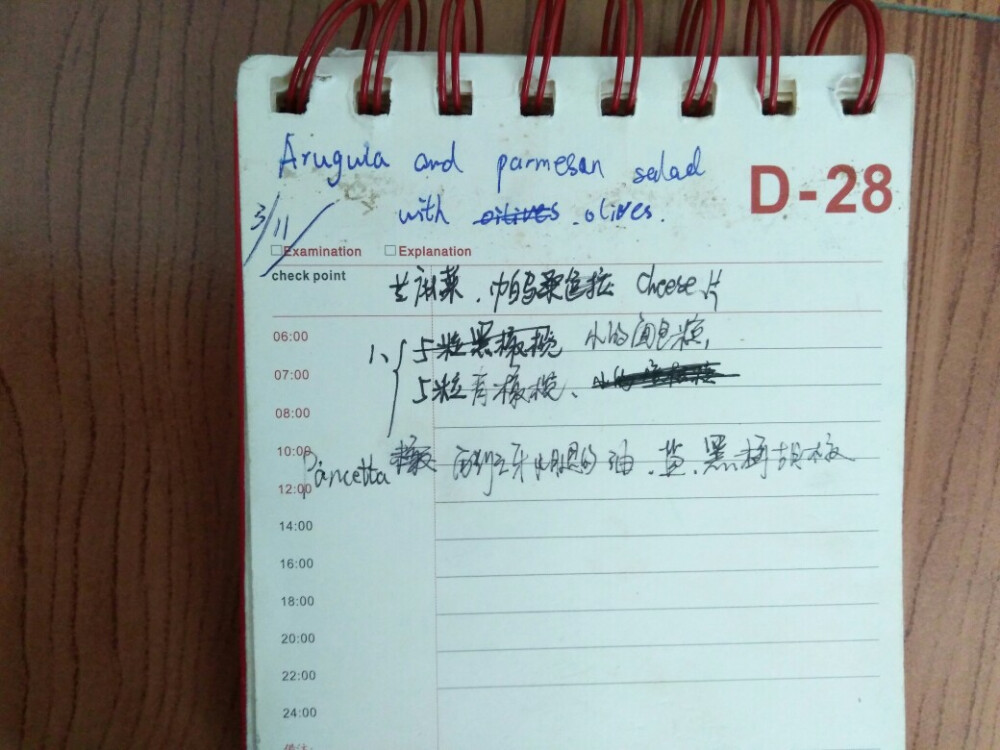 Arugula and parmesan salad
with olives.
D-28
3/11
Examination Explanation
check point
芝麻菜、帕马桑色拉 Cheese片
06:00
1、5粒黑橄榄 小的面包粒,
07:00
5粒青橄榄、
08:00
10:00
Pancetta 牙 的油、盐、黑
12:00
14:00
16:00
18:00
20:00
22:00
24:00